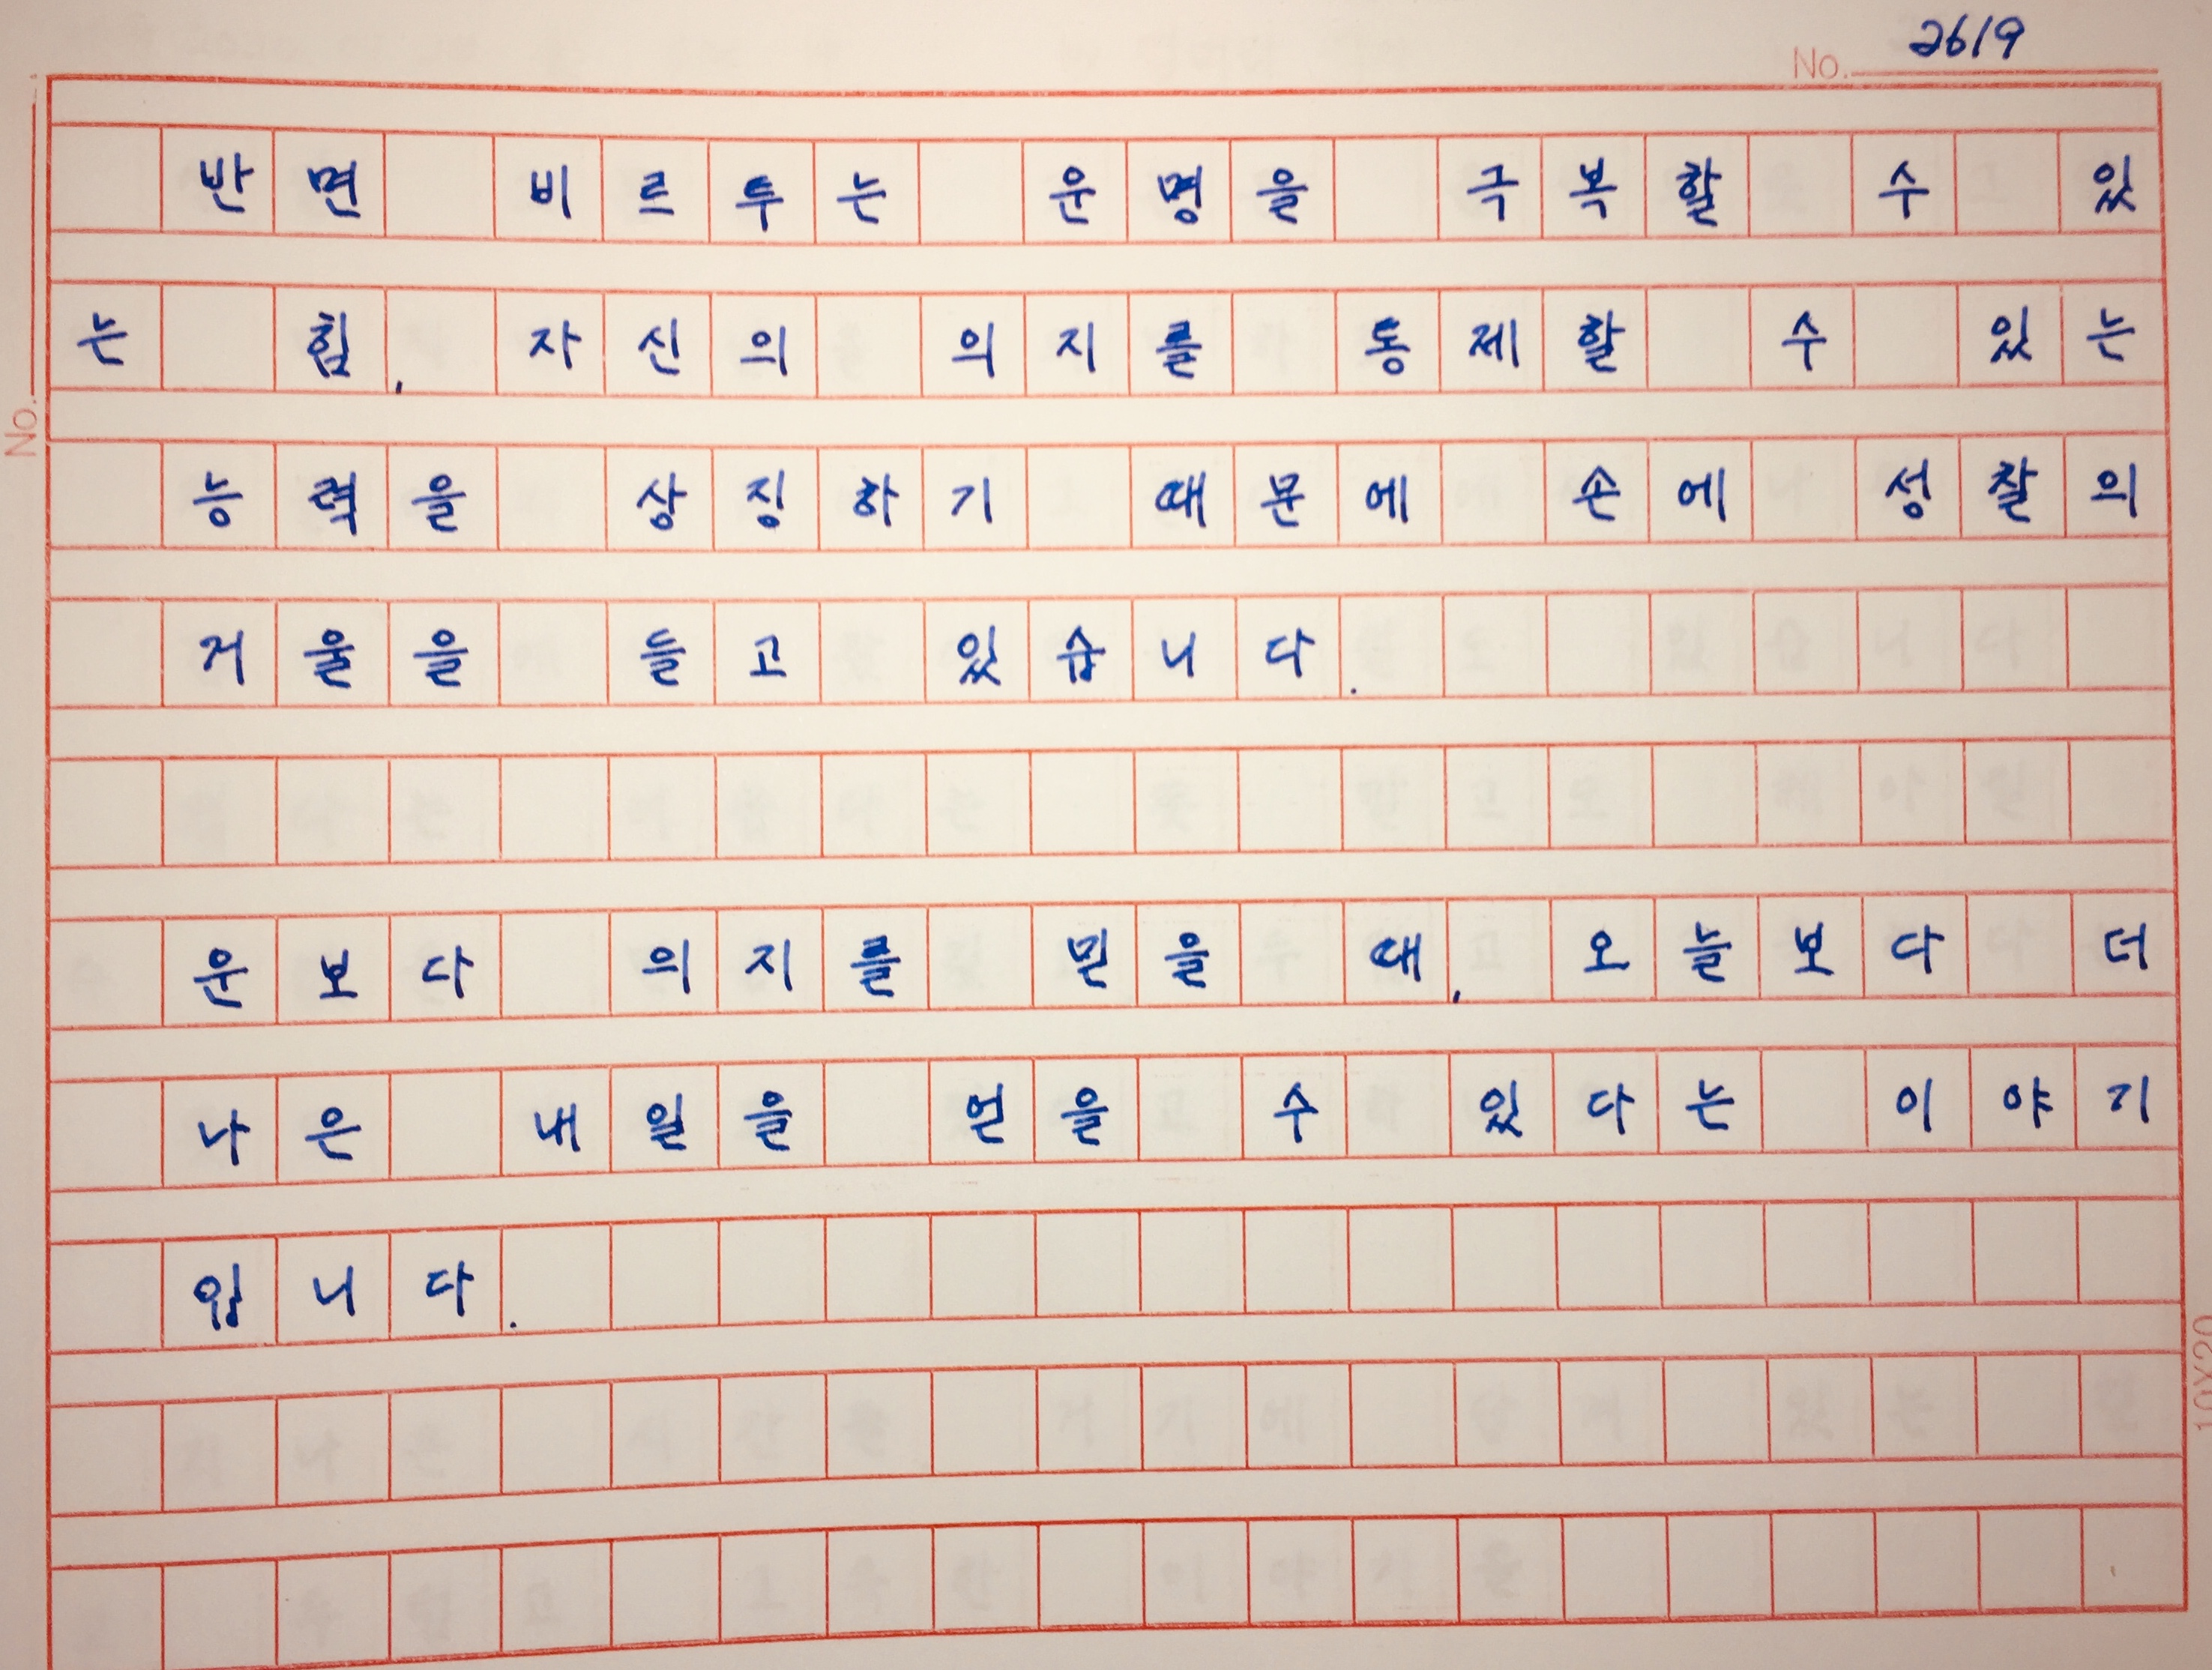 No. 2619
반면 비르투는 운명을 극복할 수 있
는 힘, 자신의 의지를 통제할 수 있는
능력을 상징하기 때문에 손에 성찰의
거울을 들고 있습니다.
운보다 의지를 믿을 때, 오늘보다 더
나은 내일을 얻을 수 있다는 이야기
입니다.
No.
10X20